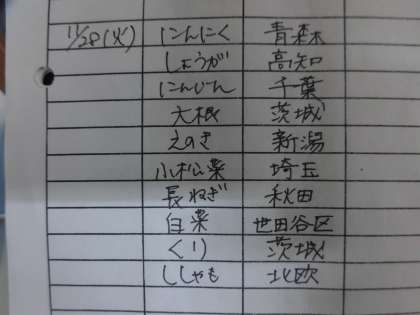 11/28(火) にんにく 青森
しょうが 高知
にんじん 千葉
大根 茨城
えのき 新潟
小松菜 埼玉
長ねぎ 秋田
白菜 世田谷区
くり 茨城
ししゃも 北欧